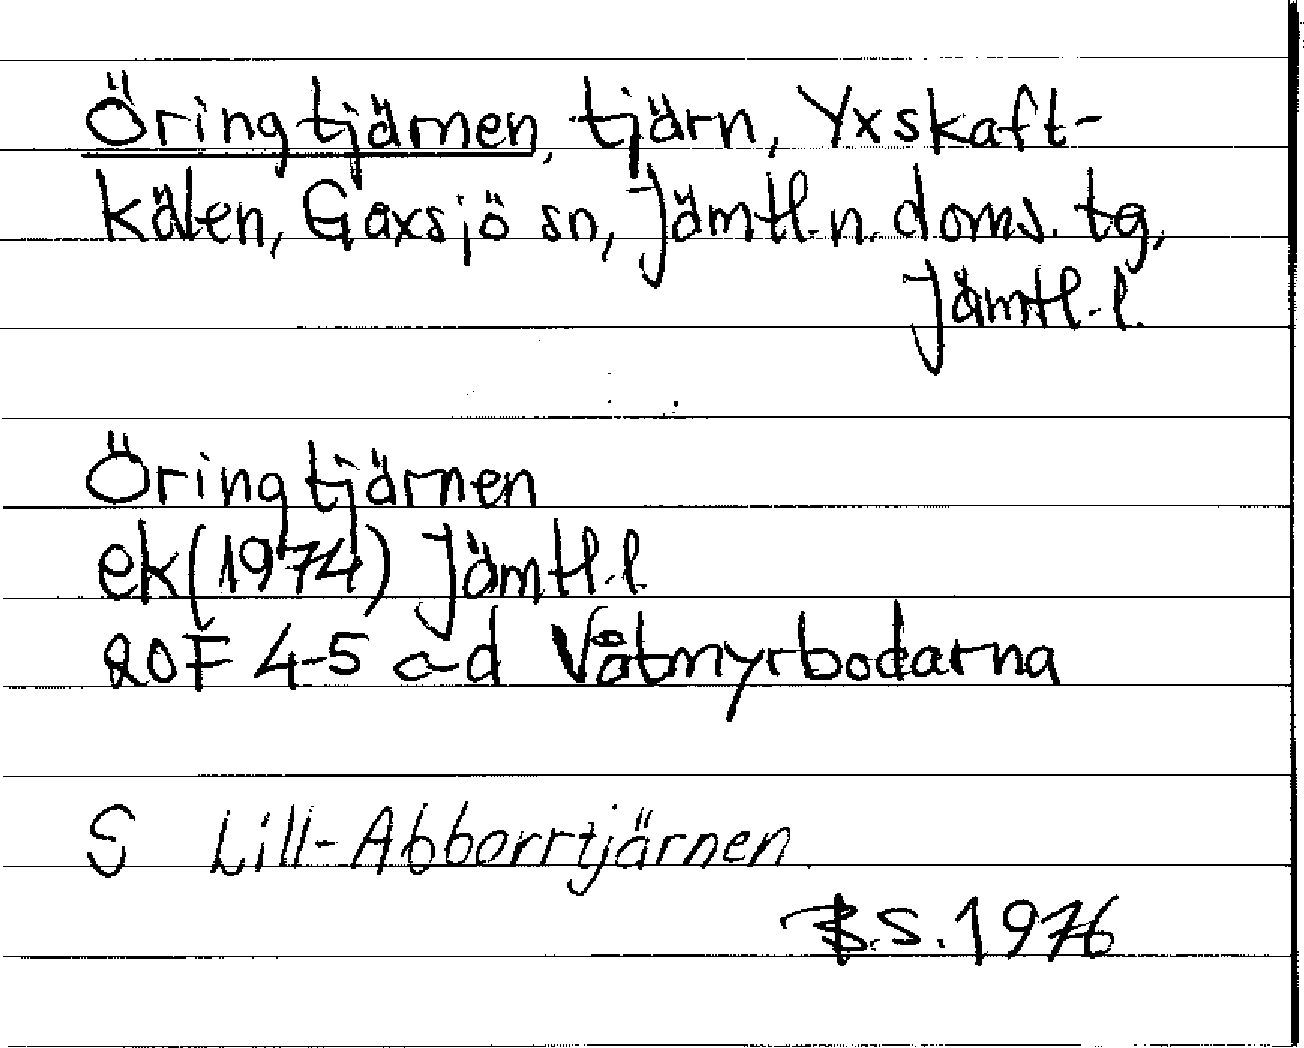 Öringtjärnen, tjärn, Yxskaft-
kälen, Gåxsjö sn, Jämtl.n.doms.tg,
Jämtl.l.
Öringtjärnen
ek(1974) Jämtl.l.
20F 4-5 c-d Våtmyrbodarna
S Lill-Abborrtjärnen
B.S. 1976